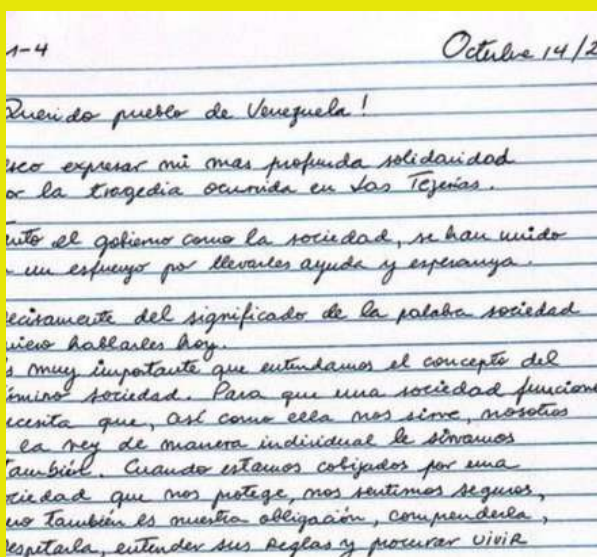 1-4 Octubre 14/2
Querido pueblo de Venezuela!
seo expresar mi mas profunda solidaridad
or la tragedia ocurrida en Las Tejerías.
nto el gobierno como la sociedad, se han unido
un esfuerzo por llevarles ayuda y esperanza.
ecisamente del significado de la palabra sociedad
uiero hablarles hoy.
s muy importante que entendamos el concepto del
rmino sociedad. Para que una sociedad funcione
ecesita que, así como ella nos sirve, nosotros
la vez de manera individual le sirvamos
también. Cuando estamos cobijados por una
ciedad que nos protege, nos sentimos seguros,
ero también es nuestra obligación, comprenderla,
espetarla, entender sus reglas y procurar vivir